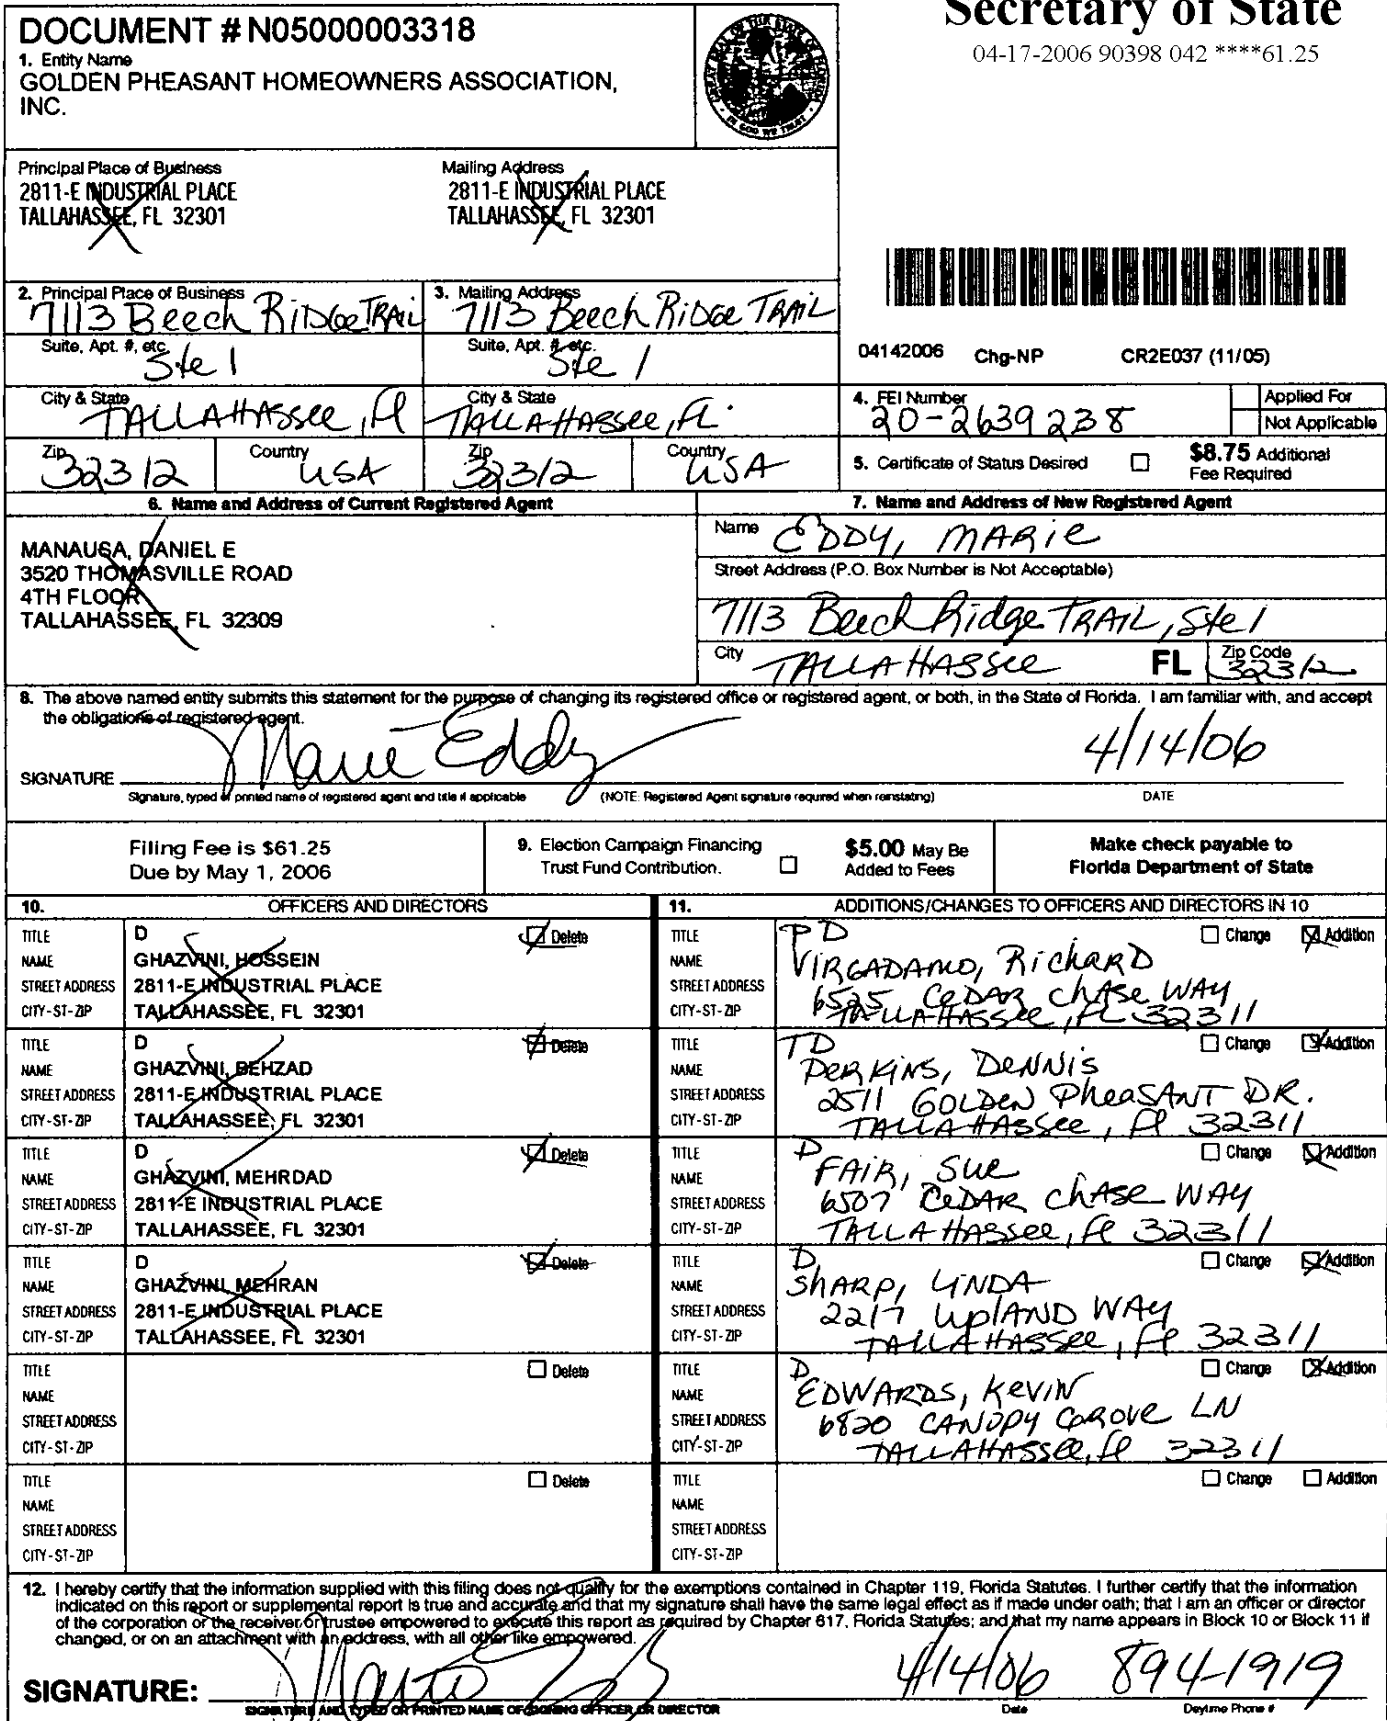 Secretary of State
04-17-2006 90398 042 ****61.25
DOCUMENT # N05000003318
1. Entity Name
GOLDEN PHEASANT HOMEOWNERS ASSOCIATION,
INC.
GREAT SEAL OF THE STATE OF FLORIDA
IN GOD WE TRUST
Principal Place of Business
2811-E INDUSTRIAL PLACE
TALLAHASSEE, FL 32301
Mailing Address
2811-E INDUSTRIAL PLACE
TALLAHASSEE, FL 32301
2. Principal Place of Business
7113 Beech Ridge TRAIL
Suite, Apt. #, etc.
Ste 1
City & State
TALLAHASSee, Fl
Zip
32312
Country
USA
3. Mailing Address
7113 Beech Ridge TRAIL
Suite, Apt. #, etc.
Ste 1
City & State
TALLAHASSee, FL.
Zip
32312
Country
USA
04142006 Chg-NP CR2E037 (11/05)
4. FEI Number
20-2639238
Applied For
Not Applicable
5. Certificate of Status Desired
$8.75 Additional
Fee Required
6. Name and Address of Current Registered Agent
MANAUSA, DANIEL E
3520 THOMASVILLE ROAD
4TH FLOOR
TALLAHASSEE, FL 32309
7. Name and Address of New Registered Agent
Name
EDDY, MARIE
Street Address (P.O. Box Number is Not Acceptable)
7113 Beech Ridge TRAIL, Ste 1
City
TALLAHASSee
FL
Zip Code
32312
8. The above named entity submits this statement for the purpose of changing its registered office or registered agent, or both, in the State of Florida. I am familiar with, and accept
the obligations of registered agent.
SIGNATURE
Marie Eddy
4/14/06
Signature, typed or printed name of registered agent and title if applicable
(NOTE: Registered Agent signature required when reinstating)
DATE
Filing Fee is $61.25
Due by May 1, 2006
9. Election Campaign Financing
Trust Fund Contribution.
$5.00 May Be
Added to Fees
Make check payable to
Florida Department of State
10. OFFICERS AND DIRECTORS
TITLE D Delete
NAME GHAZVINI, HOSSEIN
STREET ADDRESS 2811-E INDUSTRIAL PLACE
CITY-ST-ZIP TALLAHASSEE, FL 32301
TITLE D Delete
NAME GHAZVINI, BEHZAD
STREET ADDRESS 2811-E INDUSTRIAL PLACE
CITY-ST-ZIP TALLAHASSEE, FL 32301
TITLE D Delete
NAME GHAZVINI, MEHRDAD
STREET ADDRESS 2811-E INDUSTRIAL PLACE
CITY-ST-ZIP TALLAHASSEE, FL 32301
TITLE D Delete
NAME GHAZVINI, MEHRAN
STREET ADDRESS 2811-E INDUSTRIAL PLACE
CITY-ST-ZIP TALLAHASSEE, FL 32301
TITLE Delete
NAME
STREET ADDRESS
CITY-ST-ZIP
TITLE Delete
NAME
STREET ADDRESS
CITY-ST-ZIP
11. ADDITIONS/CHANGES TO OFFICERS AND DIRECTORS IN 10
TITLE PD Change Addition
NAME VIRGADAMO, RICHARD
STREET ADDRESS 6525 CeDAR CHASE WAY
CITY-ST-ZIP TALLAHASSee, FL 32311
TITLE TD Change Addition
NAME PERKINS, DENNIS
STREET ADDRESS 2511 GOLDEN PheaSANT DR.
CITY-ST-ZIP TALLAHASSee, Fl 32311
TITLE D Change Addition
NAME FAIR, SUE
STREET ADDRESS 6507 CeDAR CHASE WAY
CITY-ST-ZIP TALLAHASSee, Fl 32311
TITLE D Change Addition
NAME SHARP, LINDA
STREET ADDRESS 2217 UPLAND WAY
CITY-ST-ZIP TALLAHASSee, Fl 32311
TITLE D Change Addition
NAME EDWARDS, KEVIN
STREET ADDRESS 6820 CANOPY GROVE LN
CITY-ST-ZIP TALLAHASSee, fl 32311
TITLE Change Addition
NAME
STREET ADDRESS
CITY-ST-ZIP
12. I hereby certify that the information supplied with this filing does not qualify for the exemptions contained in Chapter 119, Florida Statutes. I further certify that the information
indicated on this report or supplemental report is true and accurate and that my signature shall have the same legal effect as if made under oath; that I am an officer or director
of the corporation or the receiver or trustee empowered to execute this report as required by Chapter 617, Florida Statutes; and that my name appears in Block 10 or Block 11 if
changed, or on an attachment with an address, with all other like empowered.
SIGNATURE:
4/14/06 894-1919
SIGNATURE AND TYPED OR PRINTED NAME OF SIGNING OFFICER OR DIRECTOR
Date
Daytime Phone #